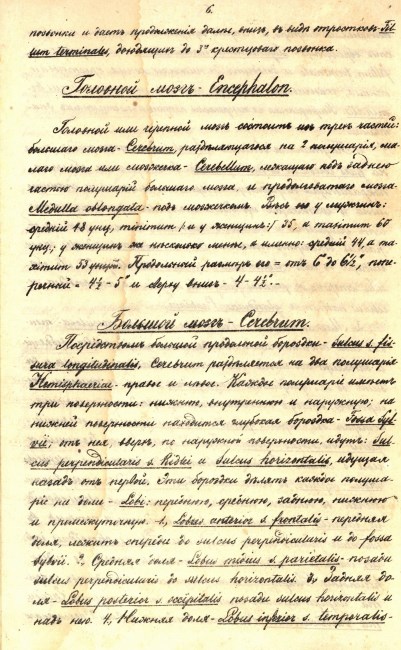 6.
позвонки и даетъ продолженія далѣе, внизъ, въ видѣ отростковъ Fi-
lum terminale, доходящимъ до 3го крестцоваго позвонка.
Головной мозгъ - Encephalon.
Головной или черепной мозгъ состоитъ изъ трехъ частей:
большаго мозга - Cerebrum, раздѣляющагося на 2 полушарія, ма-
лаго мозга или мозжечка - Cerebellum, лежащаго подъ заднею
частью полушарій большаго мозга, и продолговатаго мозга
Medulla oblongata - подъ мозжечкомъ. Вѣсъ его у мужчинъ:
средній 48 унц, minimum (и у женщинъ:) 35, а maximum 60
унц; у женщинъ же нѣсколько менѣе, а именно: средній 44, а ma-
ximum 53 унцій. Продольной размѣръ его = отъ 6" до 6½", попе-
речной = 4½ - 5" и сверху внизъ - 4 - 4½".
Большой мозгъ - Cerebrum.
Посредствомъ большой продольной бороздки - Sulcus s. fis-
sura longitudinalis, cerebrum раздѣляется на два полушарія
Hemisphaeriae - правое и лѣвое. Каждое полушаріе имѣетъ
три поверхности: нижнюю, внутреннюю и наружную; на
нижней поверхности находится глубокая бороздка - Fossa Syl-
vii; отъ нея вверхъ, по наружной поверхности, идутъ: Sul-
cus perpendicularis s. Ridlei и Sulcus horizontalis, идущая
назадъ отъ первой. Эти бороздки дѣлятъ каждое полуша-
ріе на доли - Lobi: переднюю, среднюю, заднюю, нижнюю
и промежуточную. 1, Lobus anterior s. frontalis - передняя
доля, лежитъ спереди до sulcus perpendicularis и до fossa
Sylvii. 2, Средняя доля - Lobus medius s. parietalis - позади
sulcus perpendicularis до sulcus horizontalis. 3, Задняя до-
ля - Lobus posterior s. occipitalis позади sulcus horizontalis и
надъ нею. 4, Нижняя доля - Lobus inferior s. temporalis -